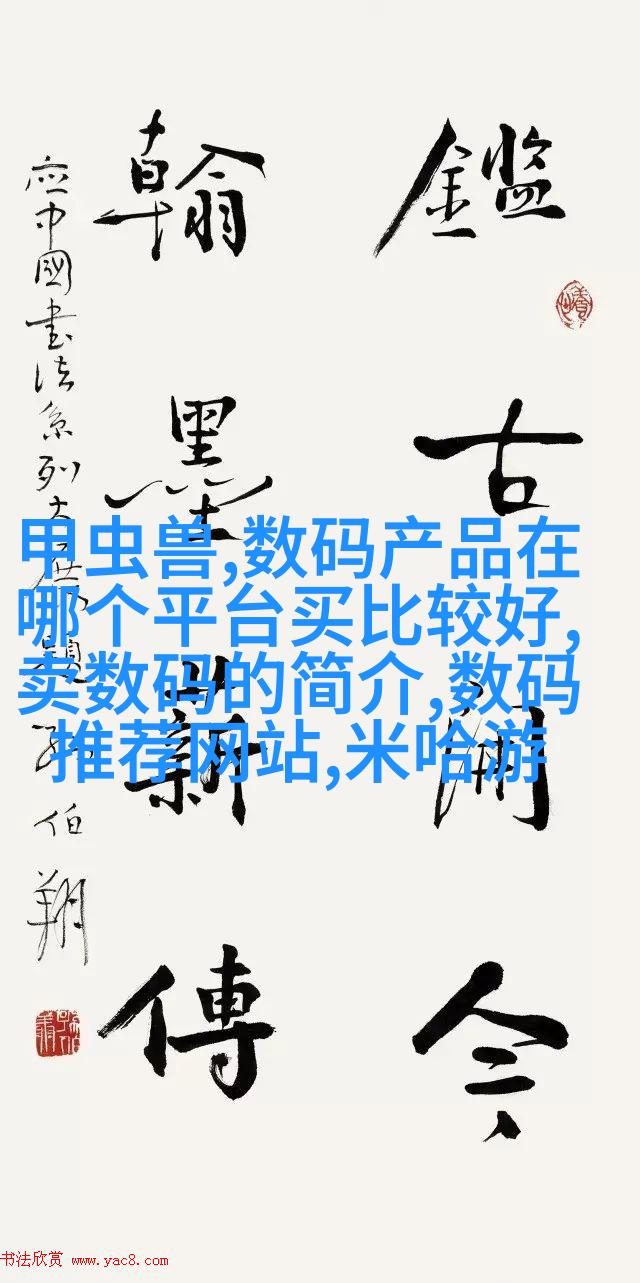 鑑古開今
翰墨薪傳
应中國書法系列大題伯翔
甲虫兽,数码产品在
哪个平台买比较好,
卖数码的简介,数码
推荐网站,米哈游
书法欣赏 www.yac8.com